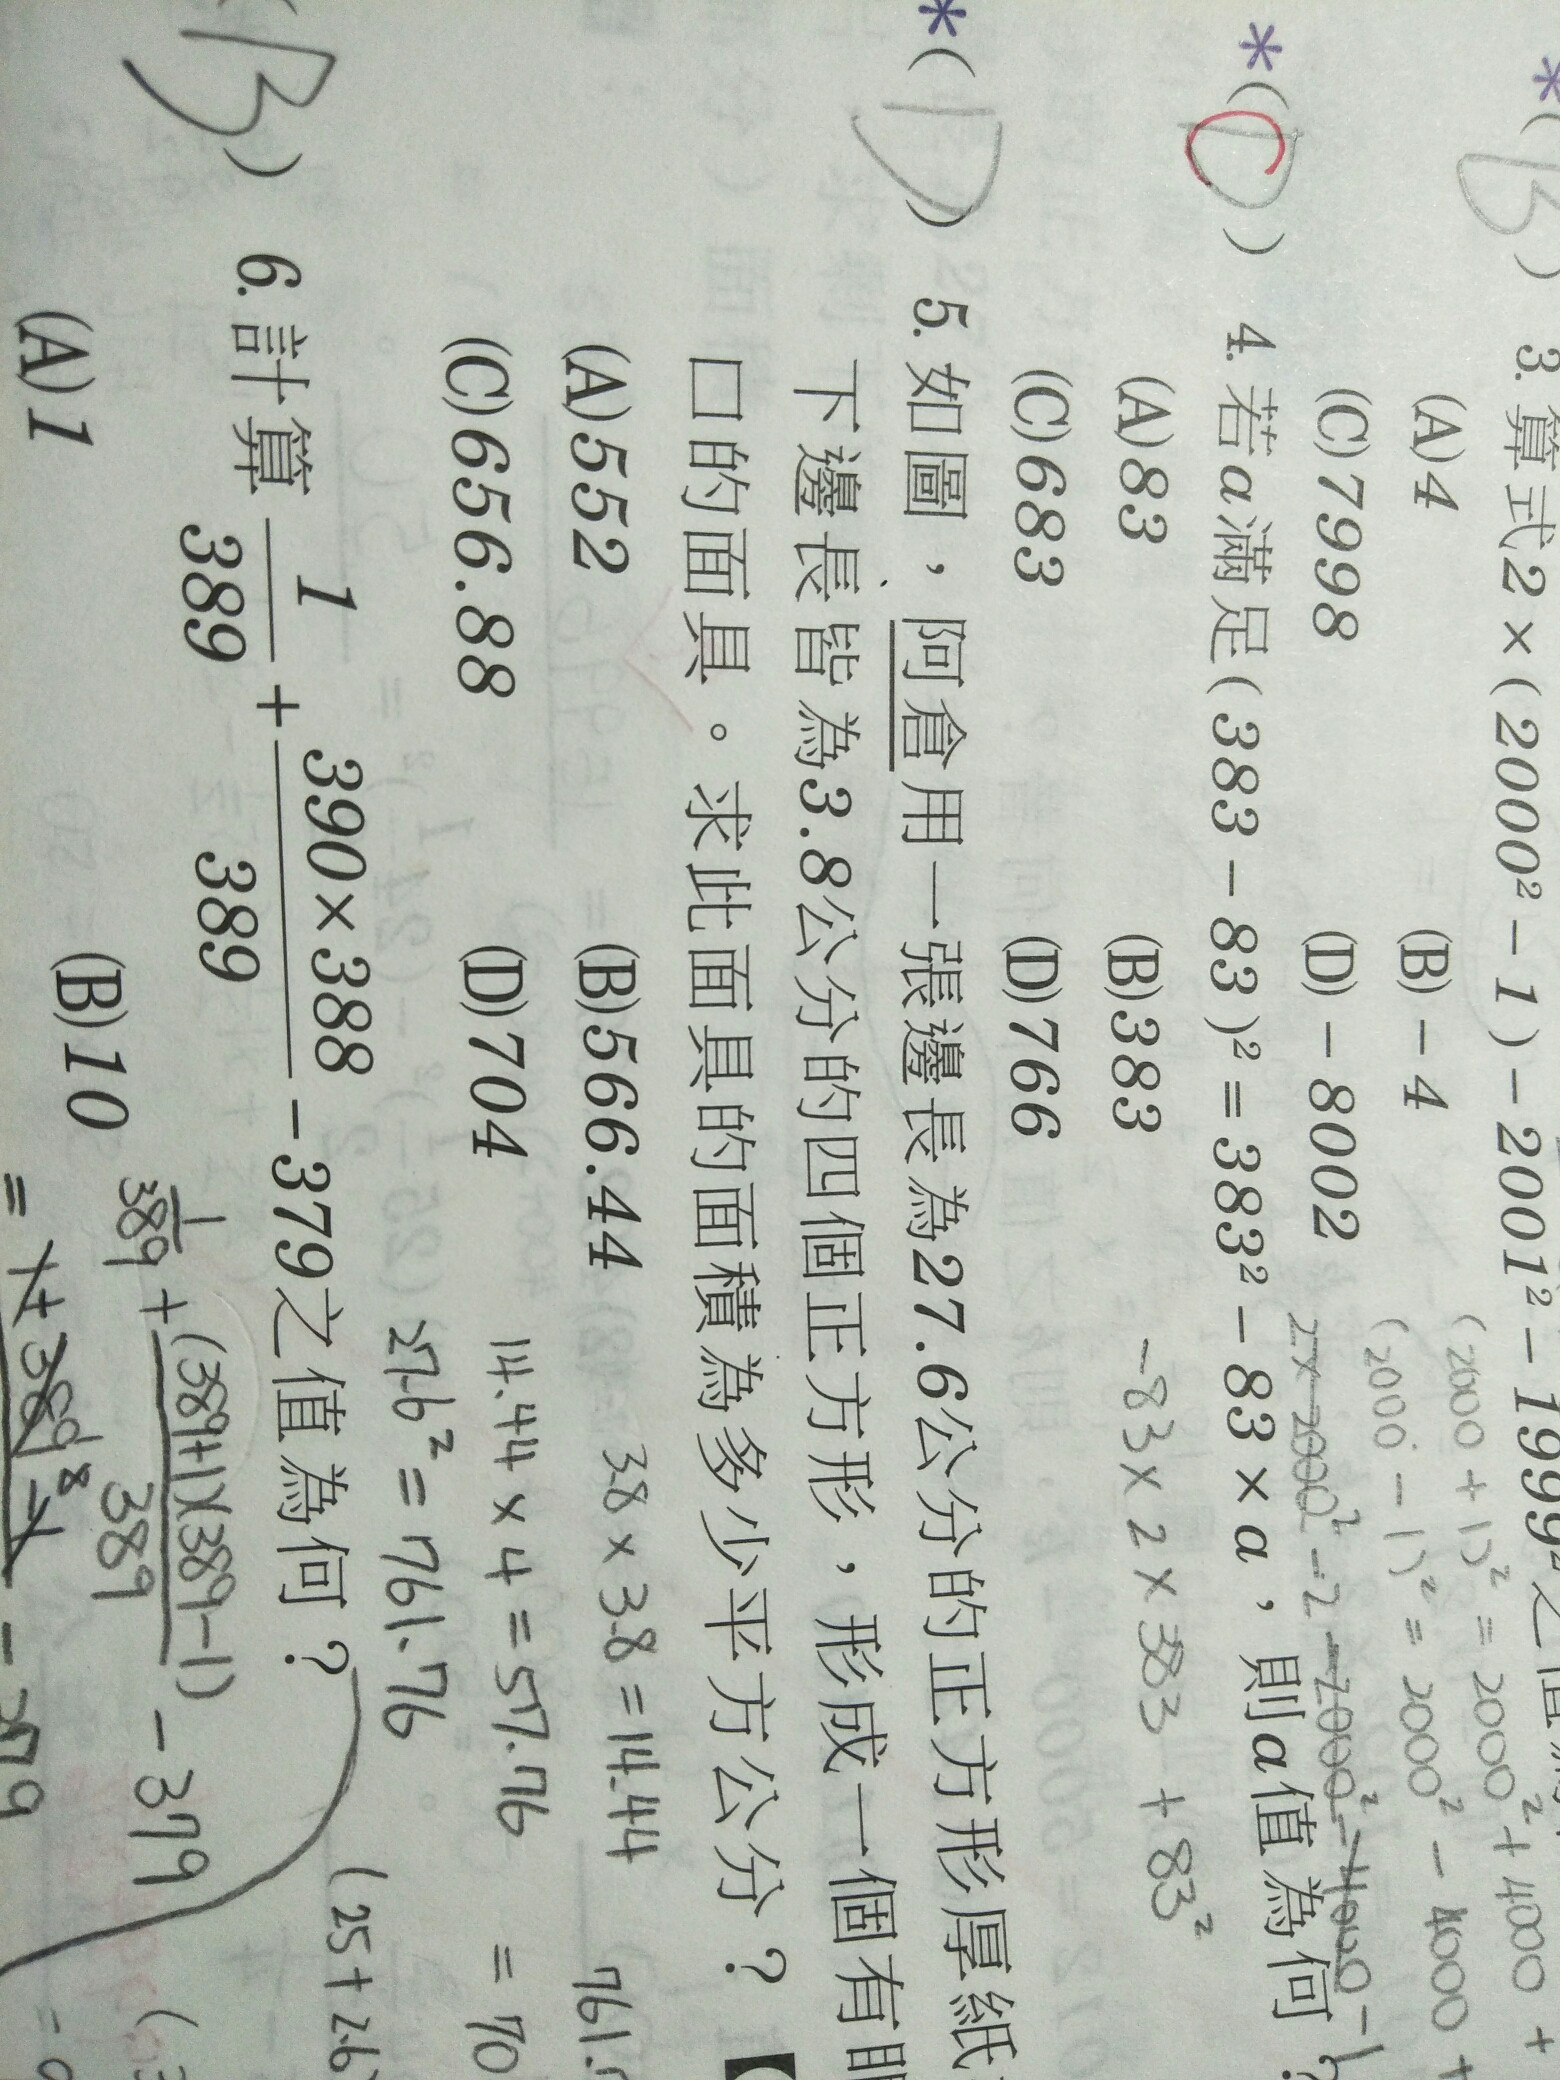 *(B) 3. 算式2×(2000²-1)-2001²-1999²之值為
(A)4 (B)-4
(2000+1)²=2000²+4000+
(C)7998 (D)-8002
(2000-1)²=2000²-4000+
2×2000²-2-2000²-4000-1
*(D) 4. 若a滿足(383-83)²=383²-83×a,則a值為何?
C
(A)83 (B)383
-83×2×383+83²
(C)683 (D)766
*(D) 5. 如圖,阿倉用一張邊長為27.6公分的正方形厚紙
下邊長皆為3.8公分的四個正方形,形成一個有
口的面具。求此面具的面積為多少平方公分?【
(A)552 (B)566.44
3.8×3.8=14.44
761.
(C)656.88 (D)704
14.44×4=57.76
=70
27.6²=761.76
(25+2.6
(B) 6. 計算 1/389 + 390×388/389 -379之值為何?
1/389 + (389+1)(389-1)/389 -379
(A)1 (B)10